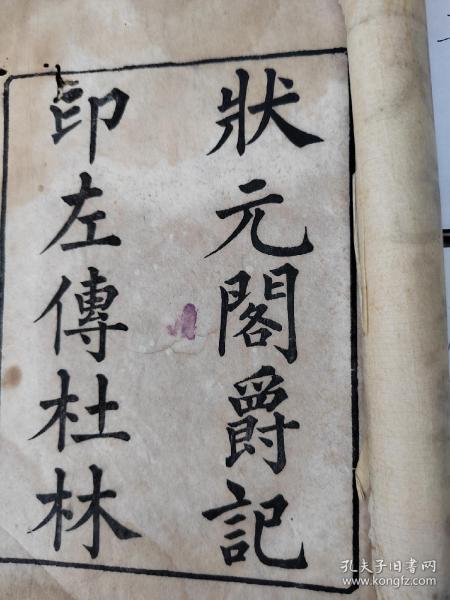 狀元閣爵記
印左傳杜林
孔夫子旧书网
www.kongfz.com